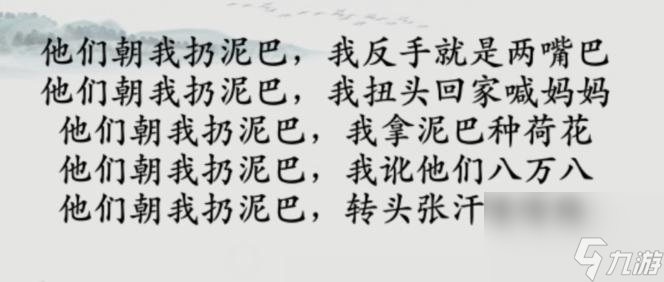 他们朝我扔泥巴，我反手就是两嘴巴
他们朝我扔泥巴，我扭头回家喊妈妈
他们朝我扔泥巴，我拿泥巴种荷花
他们朝我扔泥巴，我讹他们八万八
他们朝我扔泥巴，转头张汗
九游